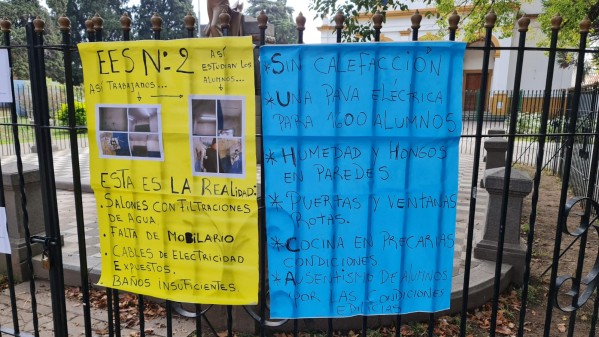 EES N: 2
ASÍ TRABAJAMOS...
ASÍ
ESTUDIAN LOS
ALUMNOS...
ESTA ES LA REALIDAD:
. SALONES CON FILTRACIONES
DE AGUA
. FALTA DE MOBILARIO
. CABLES DE ELECTRICIDAD
EXPUESTOS.
. BAÑOS INSUFICIENTES.
* SIN CALEFACCIÓN
* UNA PAVA ELÉCTRICA
PARA 1600 ALUMNOS
* HUMEDAD Y HONGOS
EN PAREDES
* PUERTAS Y VENTANAS
ROTAS.
* COCINA EN PRECARIAS
CONDICIONES
* AUSENTISMO DE ALUMNOS
POR LAS CONDICIONES
EDILICIAS